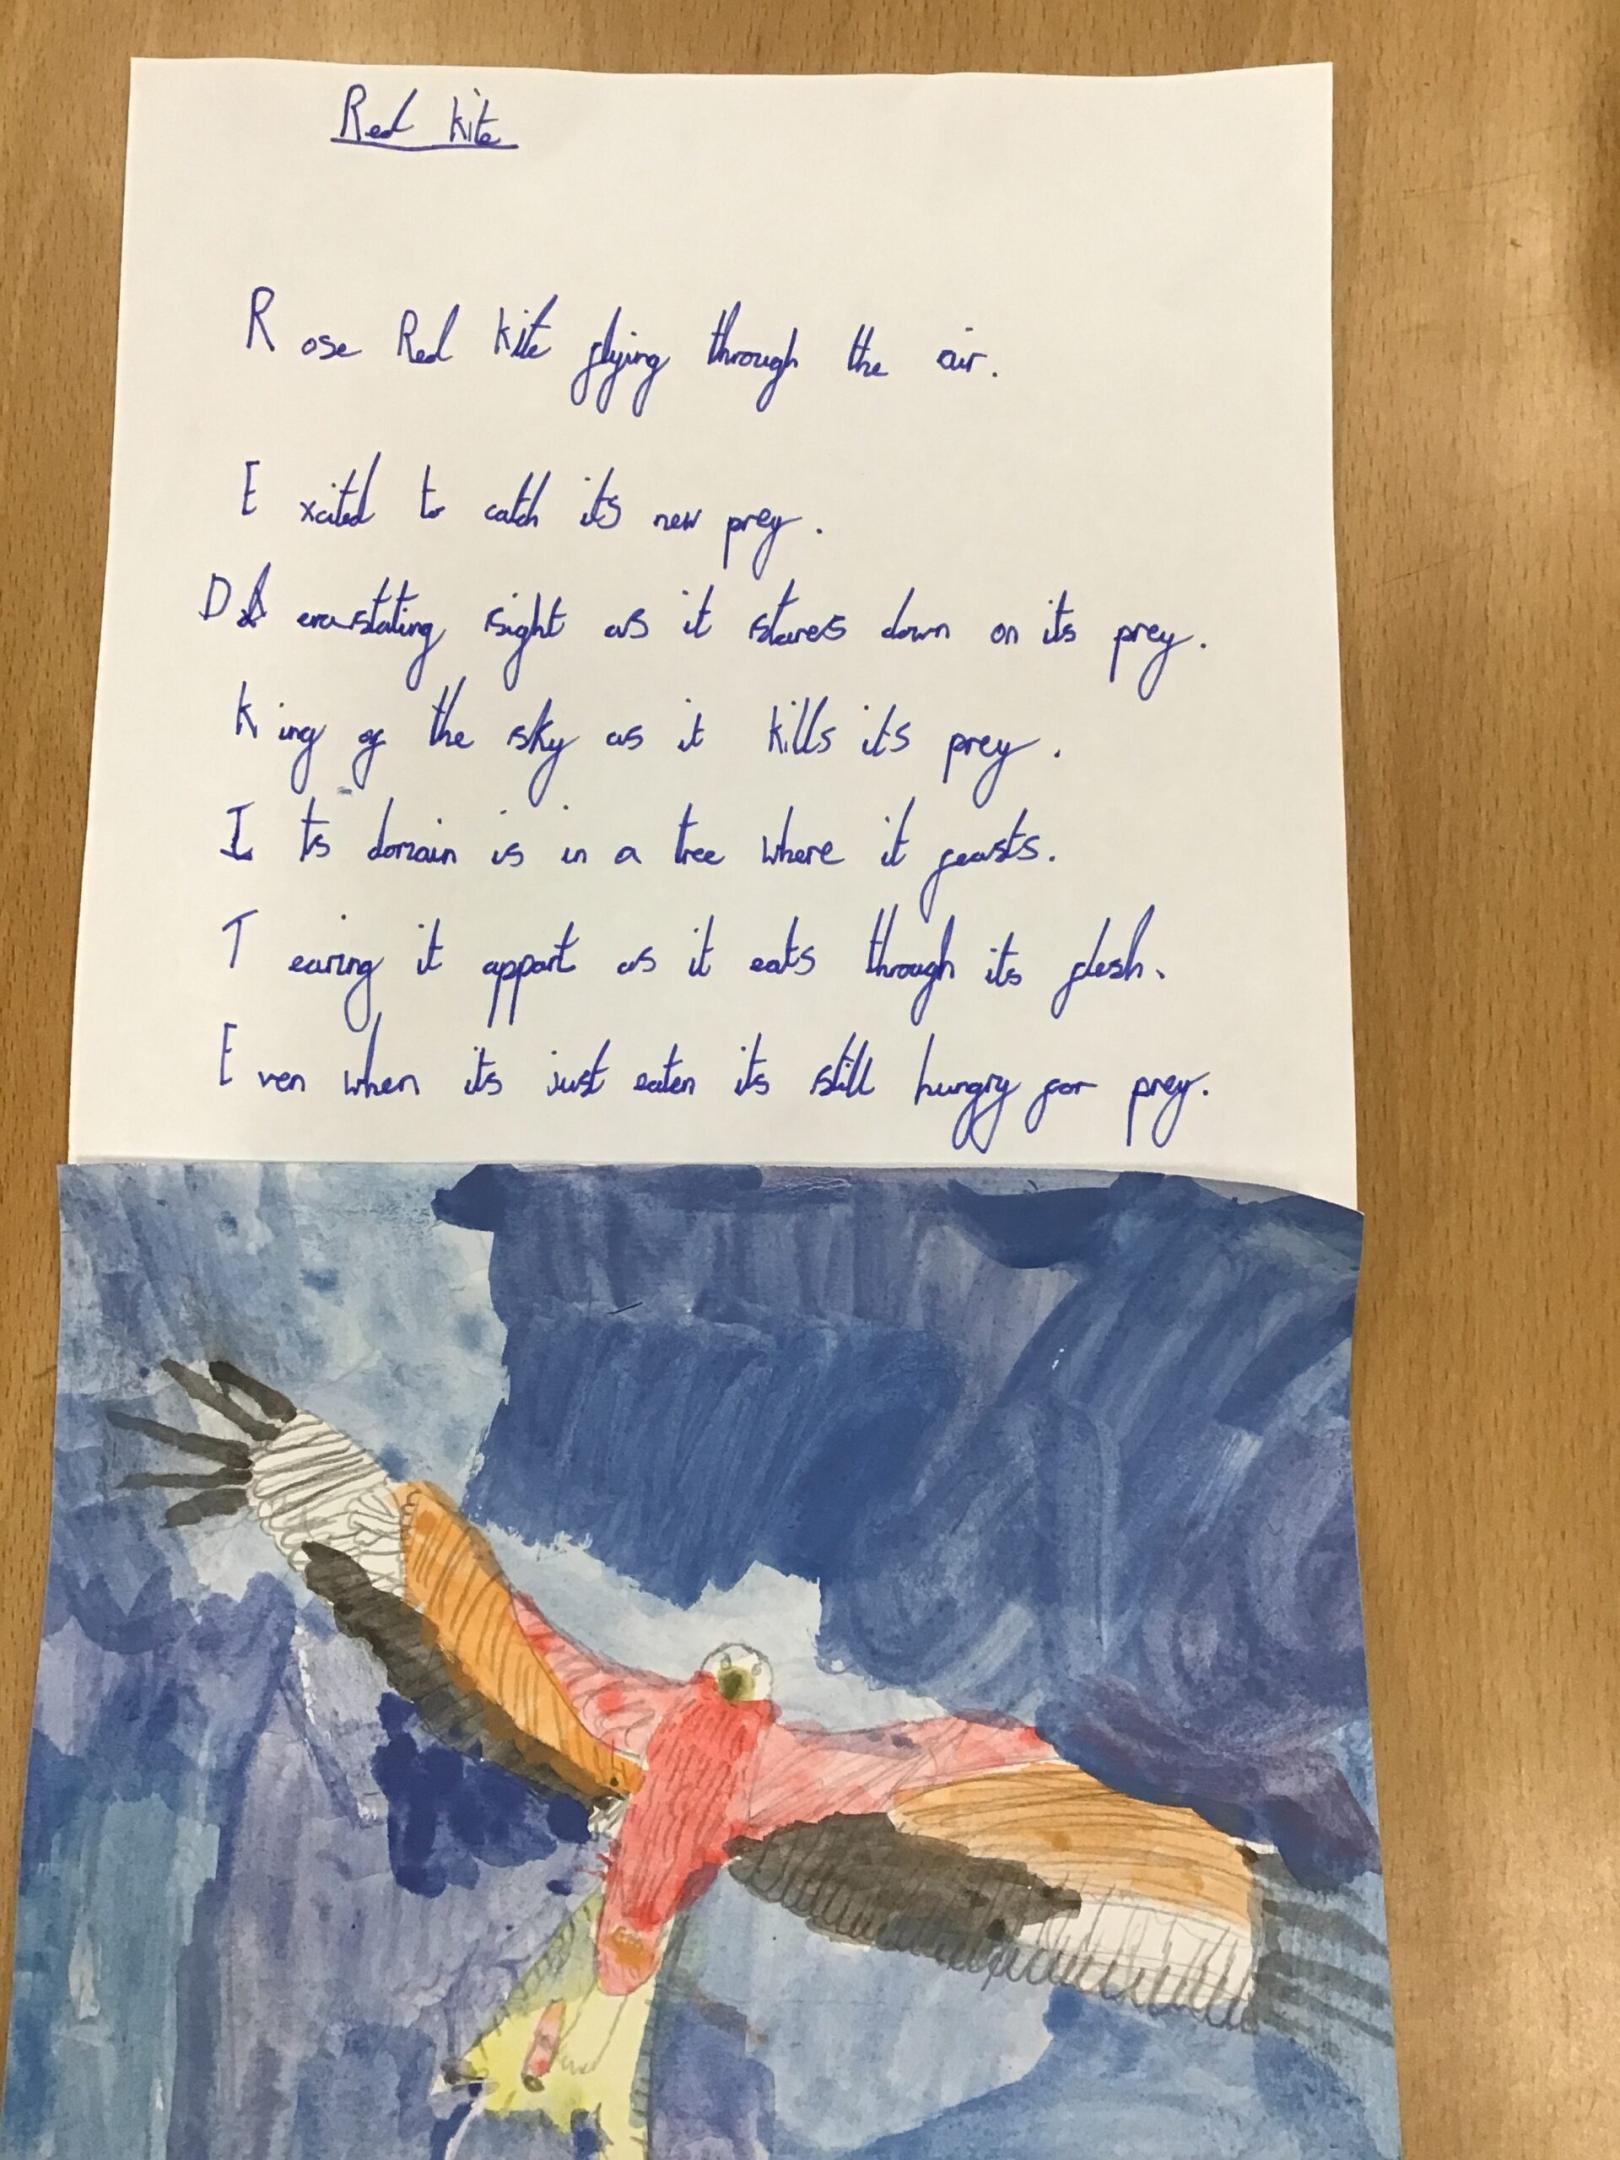 Red kite
Rose Red Kite flying through the air.
Excited to catch its new prey.
Devastating sight as it stares down on its prey.
King of the sky as it kills its prey.
Its domain is in a tree where it feasts.
Tearing it appart as it eats through its flesh.
Even when its just eaten its still hungry for prey.